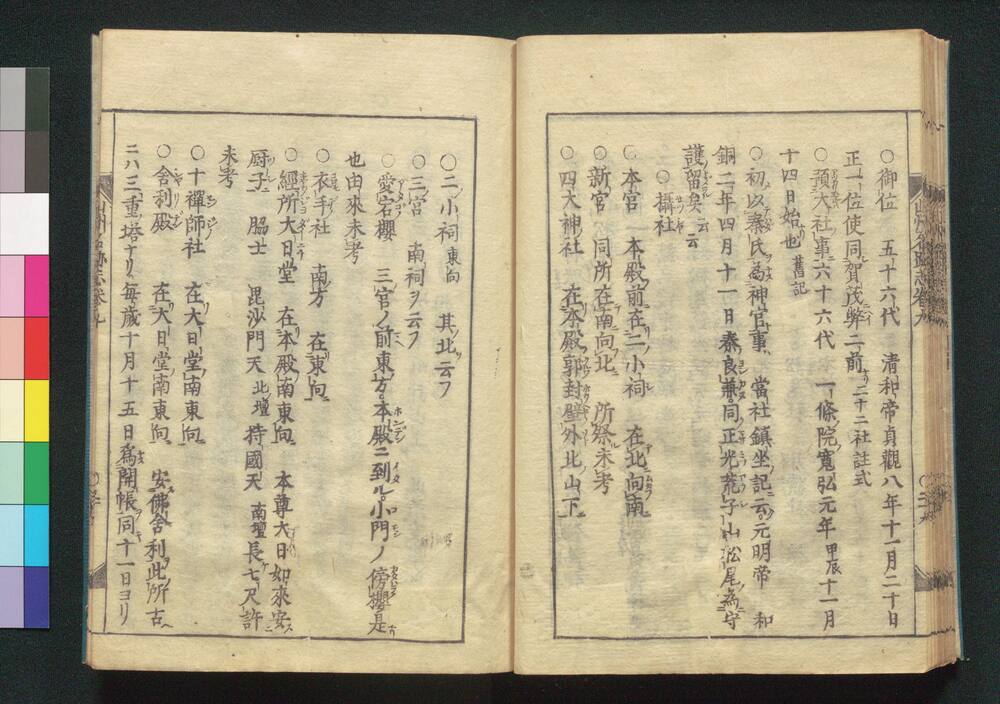 ○御位 五十六代 清和帝貞觀八年十一月二十日
正一位使同賀茂幣二前 二十二社註式
○預大社事 六十六代 一條院寬弘元年甲辰十一月
十四日始也 舊記
○初以秦氏為神官事 當社鎮坐記云元明帝 和
銅二年四月十一日秦良兼同正光荒子山松尾為守
護留矣云云
○攝社
○本宮 本殿前在二小祠 在北向南
○新宮 同所在南向北 所祭未考
○四大神社 在本殿郭封壁外北山下
○二小祠 東向 其北云フ
○三宮 南祠ヲ云フ
○愛宕櫻 三宮ノ前東方本殿ニ到ル小門ノ傍櫻是
也由來未考
○衣手社 南方 在東向
○經所大日堂 在本殿南東向 本尊大日如來安
厨子 脇士 毘沙門天 北壇 持國天 南壇 長七尺許
未考
○十禪師社 在大日堂南東向
○舍利殿 在大日堂南東向 安佛舍利此所古ヘ
ニハ三重塔ナリ每歲十月十五日為開帳同十一日ヨリ